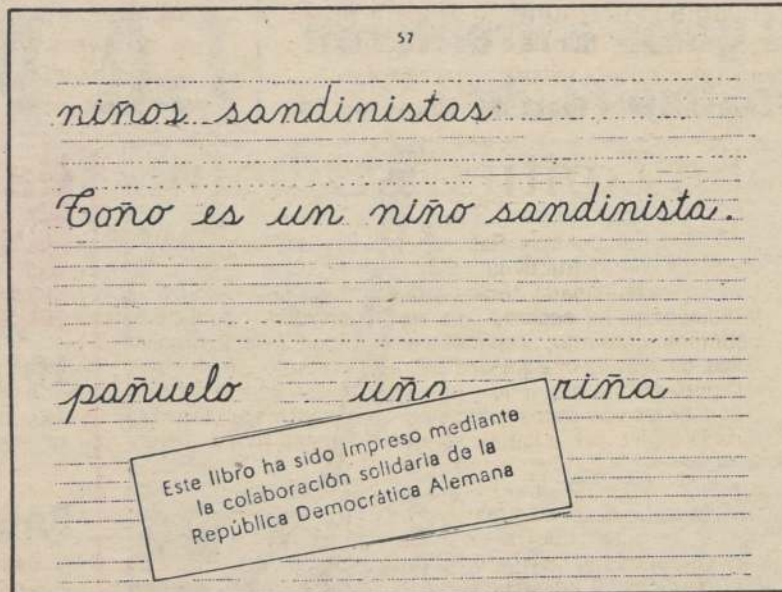 57
niños sandinistas
Toño es un niño sandinista.
pañuelo uña riña
Este libro ha sido impreso mediante
la colaboración solidaria de la
República Democrática Alemana